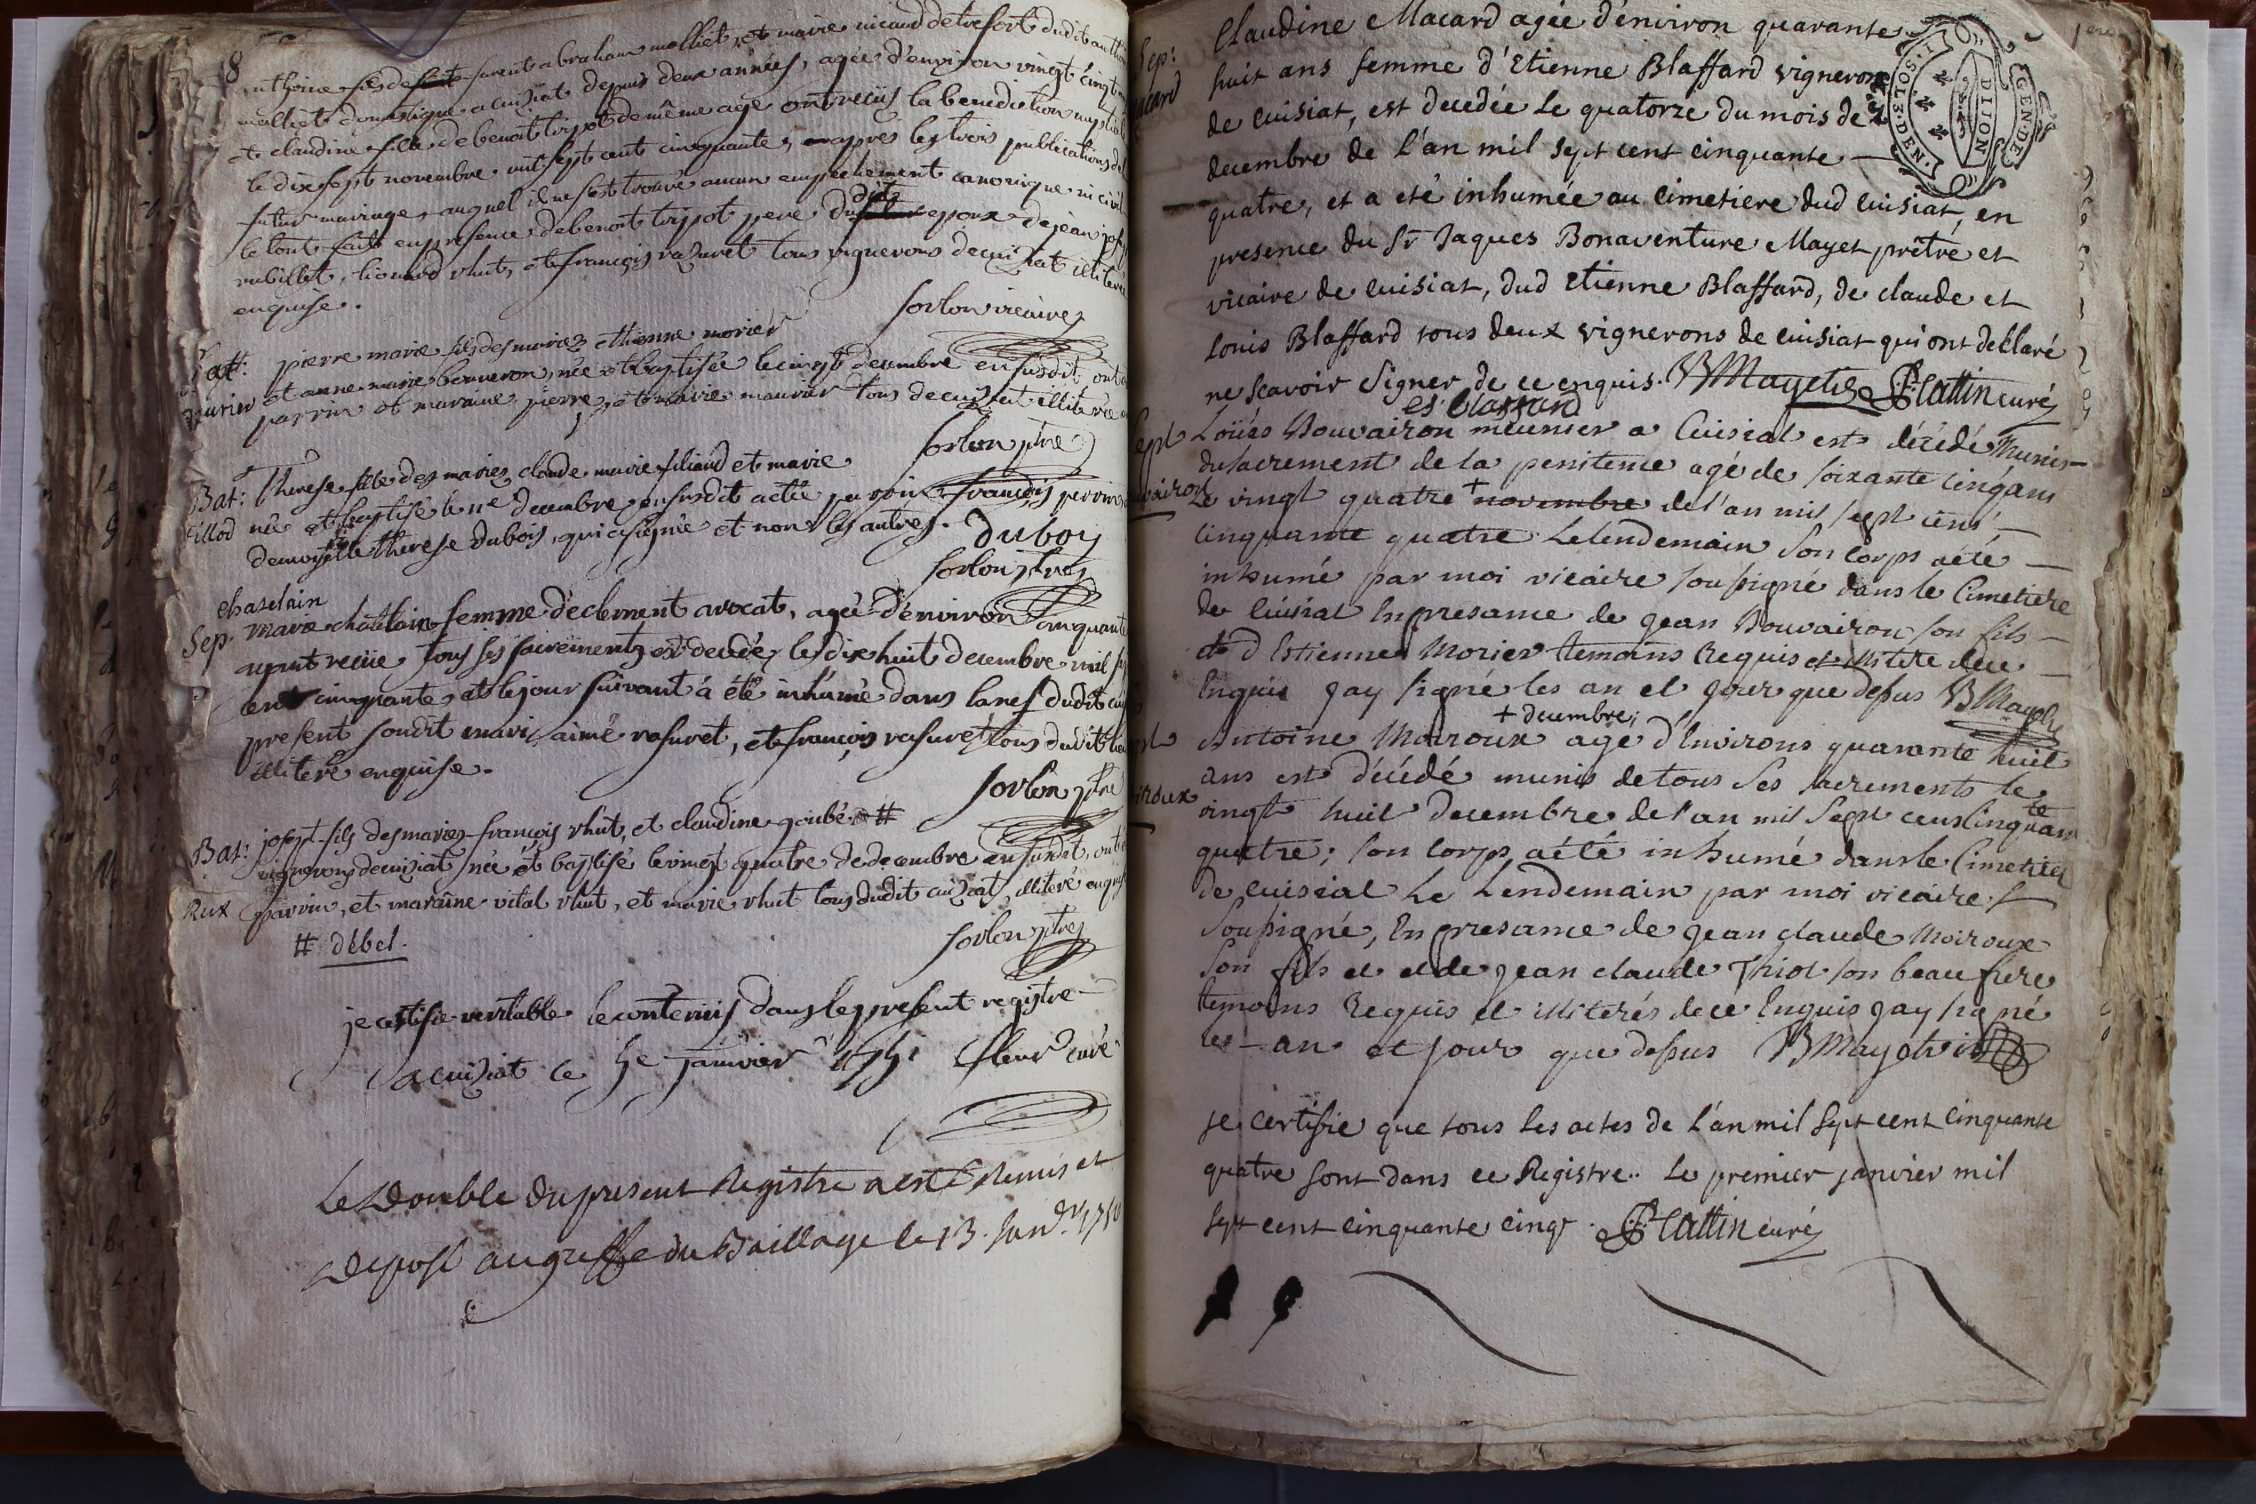 8
anthoine fils de furent abraham molliet, et marie nicaud de tresfort dudit
molliet domestique a cuiziat depuis deux années, agée d'environ vingt cinq
et claudine fille de benoit tripot de même age ont reçus la benediction nuptiale
le dix sept novembre mil sept cent cinquante, apres les trois publications
futur mariage, auquel il ne s'est trouvé aucun empechement canonique ni civil
le tout fait en presence de benoit tripot pere dudit epoux de jean
rubillet, lionard vhut, et françois razuret tous vignerons de cuiziat illiteré
enquise.
sorlon vicaire
Bat: pierre marie fils des mariez ethienne morier
murier et anne marie bouveron, née et baptisée le vingt decembre en susdit, ont
parrin et maraine, pierre, et marie maurier tous de cuiziat illiterée
sorlon ptre
Bat: Therese fille des mariez claude marie filiaud et marie
fillod née et baptisé le 11e decembre en susdit acteé parrin françois perrin
demoiselle therese dubois, qui a signée et non les autres. duboy
sorlon ptre
chaselain
Sep. marie chatelain femme de clement avocat, agée d'environ cinquante
ayant reçüe tous ses sacrements est decedée le dix huit decembre mil
cent cinquante, et le jour suivant a été inhumée dans la nef dudit
present soudit mari, aimé rasuret, et françois rasuret tous dudit lieu
illiteré enquise.
sorlon ptre
Bat: josept fils des mariez françois vhut, et claudine goubé #
vignerons de cuiziat née et baptisé le vingt quatre de decembre en susdit,
Rux parrin, et maraine vital vhut, et marie vhut tous dudit cuiziat, illiteré
# débel.
sorlon ptre
je certifie veritable le contenus dans le present registre
a cuiziat ce 5e janvier 1751 curé
Le Double du present Registre a esté Remis et
Deposé au greffe du Baillage le 13. Janv.
Claudine Macard agée d'environ quarante
Sep: huit ans femme d'Etienne Blaffard vigneron
macard de cuisiat, est decedée le quatorze du mois de
decembre de l'an mil sept cent cinquante —
quatre, et a eté inhumée au cimetiere dud cuisiat, en
presence du Sr Jaques Bonaventure Mayet prêtre et
vicaire de cuisiat, dud Etienne Blaffard, de claude et
Louis Blaffard tous deux vignerons de cuisiat qui ont declaré
ne scavoir signer de ce enquis. BMayet P Cattin curé
GEN·DE
DIION
1·SOL·8·DEN·
Sept Louis Bouvairon meunier a Cuisiat est décédé munis
du sacrement de la penitence agé de soixante cinq ans
Le vingt quatre + novembre de l'an mil sept cens
cinquante quatre Le lendemain son corps a été —
inhumé par moi vicaire soussigné dans le Cimetiere
de Cuisiat En presance de Jean Bouvairon son fils —
et d'Estienne Morier temoins Requis et illiteré de ce
Enquis Jay signé les an et jour que dessus BMayet
+ decembre,
Antoine Moiroux agé d'Environs quarante huit
ans est décédé munis de tous ses sacrements le
vingt huit decembre de l'an mil sept cens cinquante
quatre; son corps a été inhumé dans le Cimetiere
de cuisial Le Lendemain par moi vicaire
Soussigné, En presance de Jean claude Moiroux
son fils et et de Jean claude Thiot son beau frere
temoins Requis et illiterés de ce Enquis Jay signé
les an et jour que dessus BMayet vic
Je certifie que tous les actes de l'an mil sept cent cinquante
quatre sont dans ce Registre. Le premier janvier mil
sept cent cinquante cinq. P Cattin curé